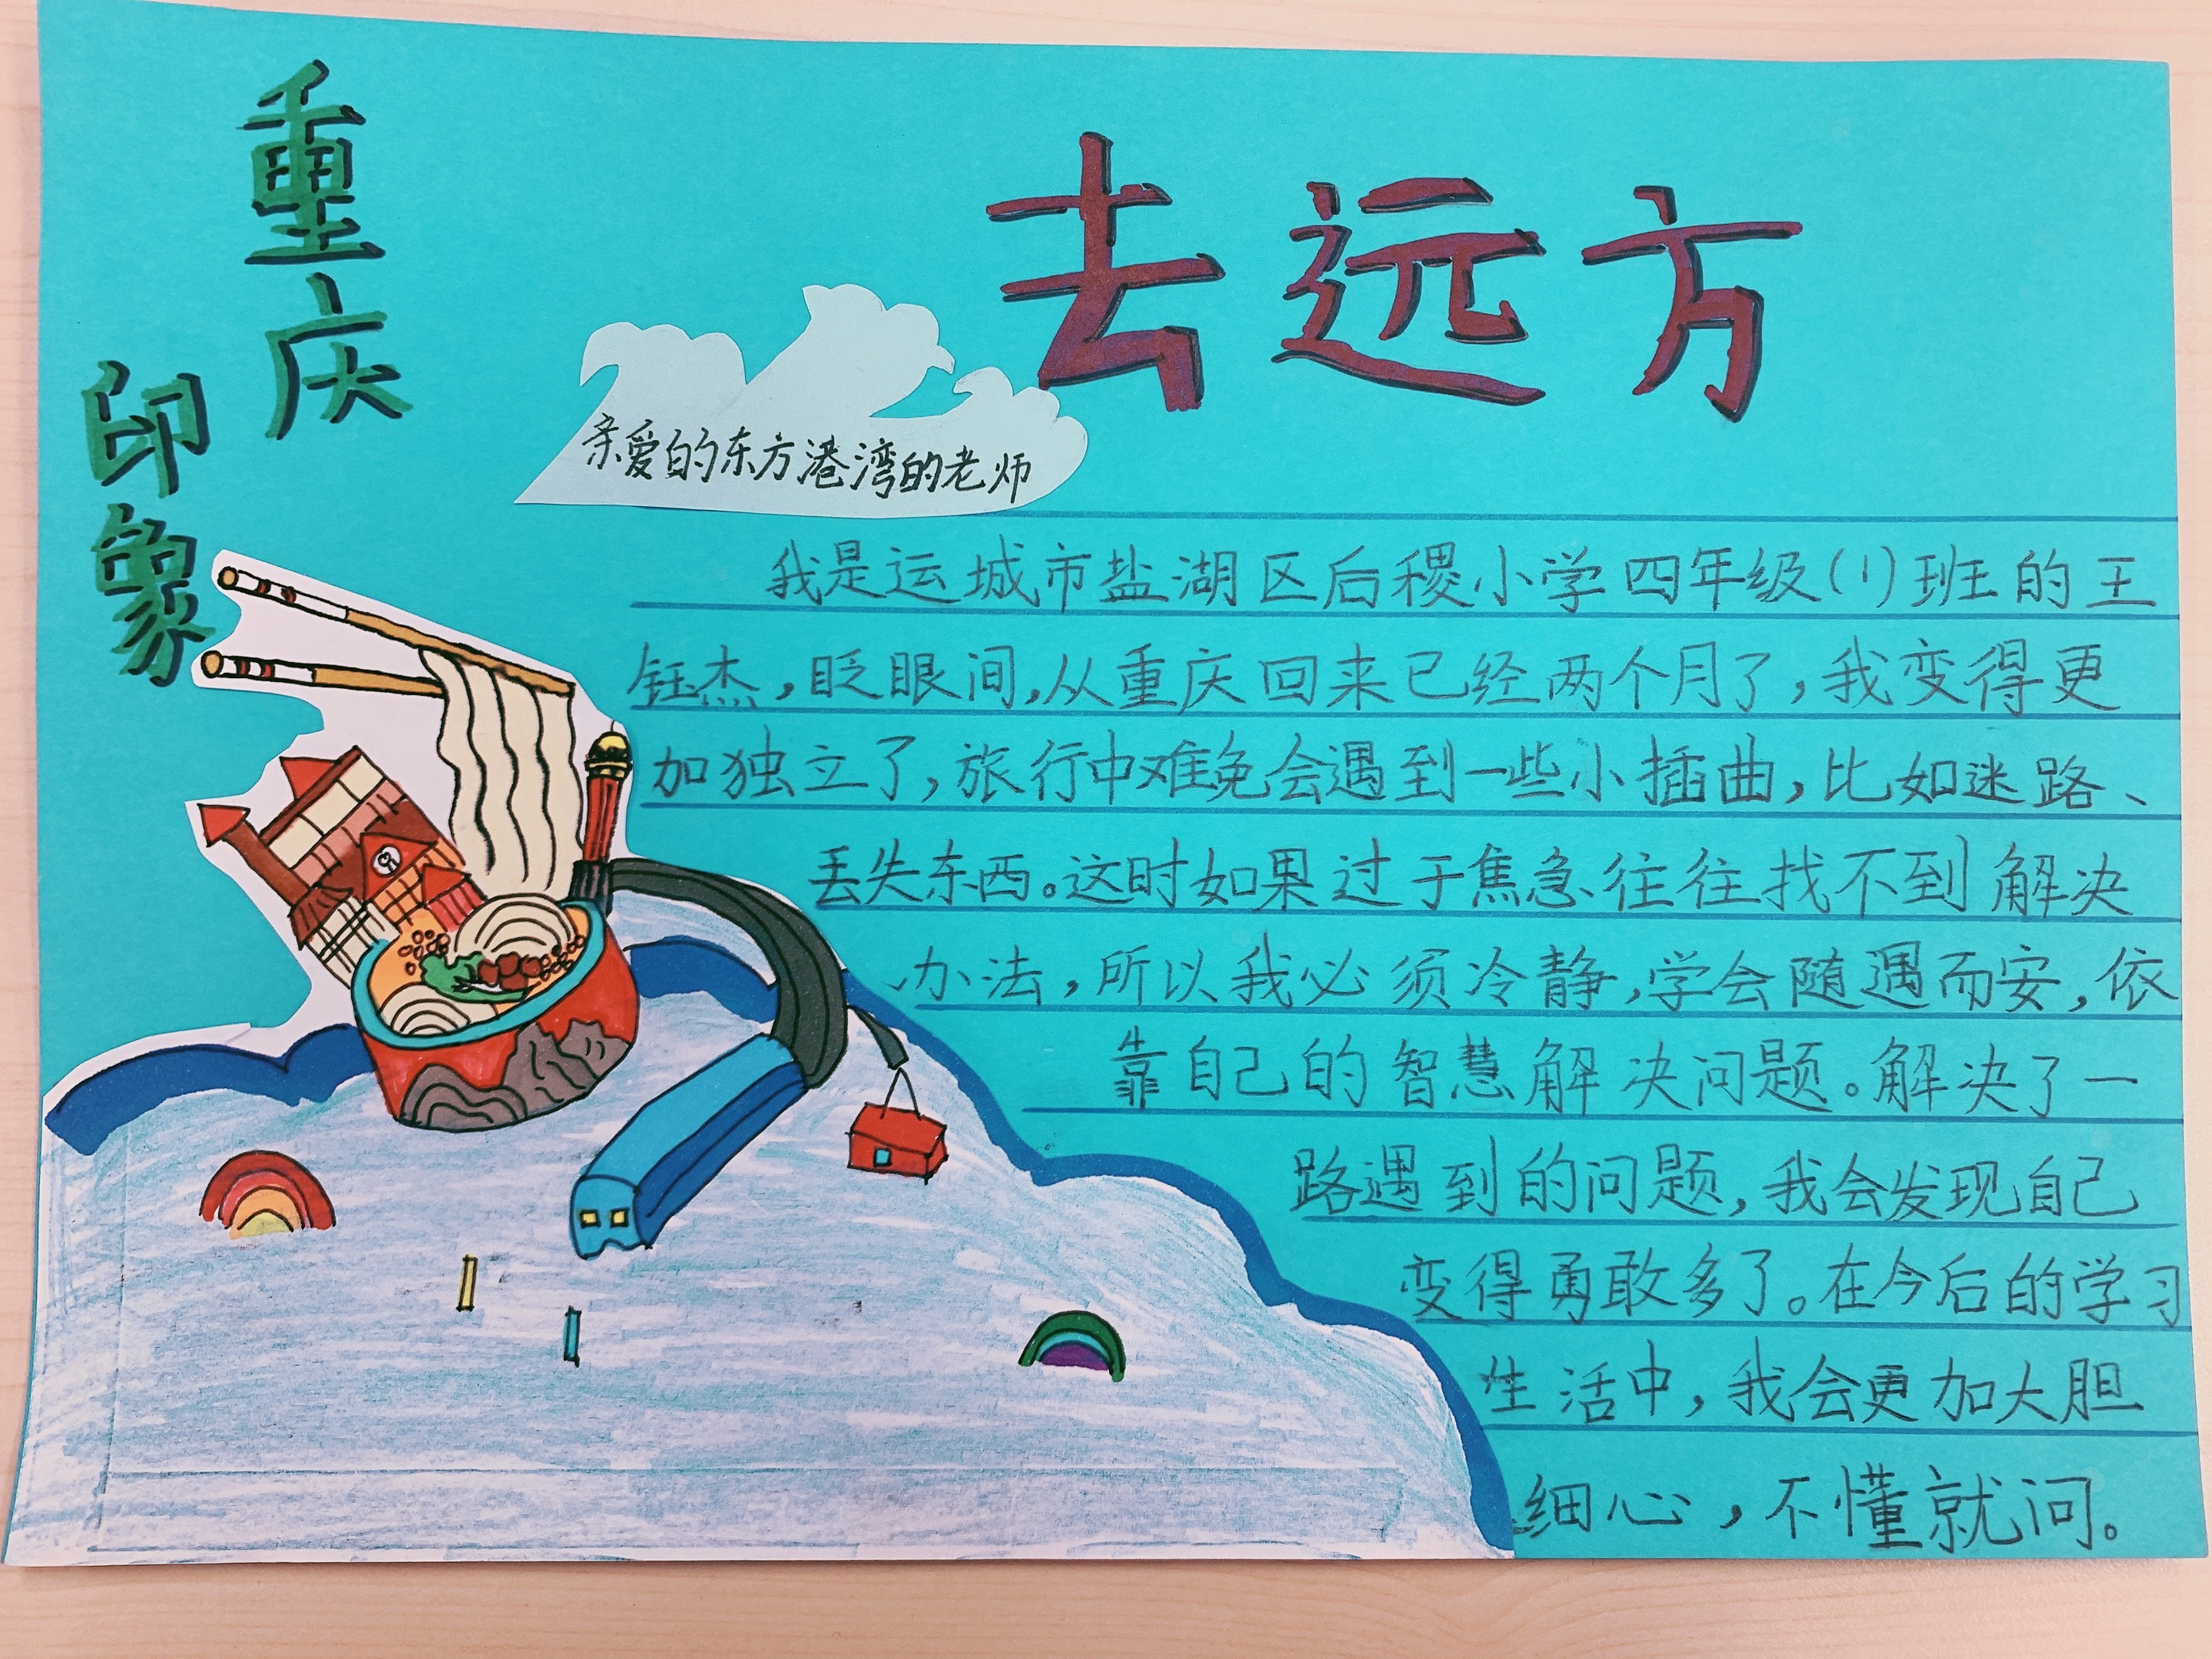 重庆
印象
去远方
亲爱的东方港湾的老师
我是运城市盐湖区后稷小学四年级(1)班的王
钰杰,眨眼间,从重庆回来已经两个月了,我变得更
加独立了,旅行中难免会遇到一些小插曲,比如迷路、
丢失东西。这时如果过于焦急往往找不到解决
办法,所以我必须冷静,学会随遇而安,依
靠自己的智慧解决问题。解决了一
路遇到的问题,我会发现自己
变得勇敢多了。在今后的学习
生活中,我会更加大胆
细心,不懂就问。